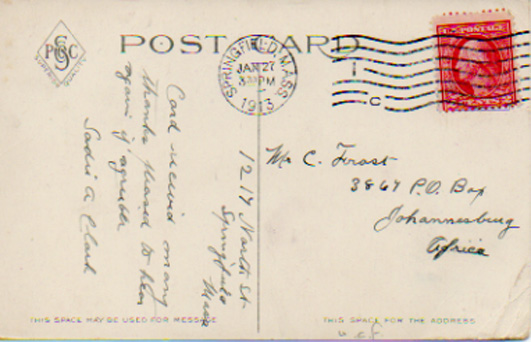 POST CARD
P S C
SUPERIOR QUALITY
SPRINGFIELD, MASS.
JAN 27
PM
1913
1
C
U.S. POSTAGE
Card received many
thanks pleased to hear
again if agreeable
Sadie A Clark
1217 North St
Springfield
Mass
Mr C. Frost
3867 P.O. Box
Johannesburg
Africa
THIS SPACE MAY BE USED FOR MESSAGE
THIS SPACE FOR THE ADDRESS